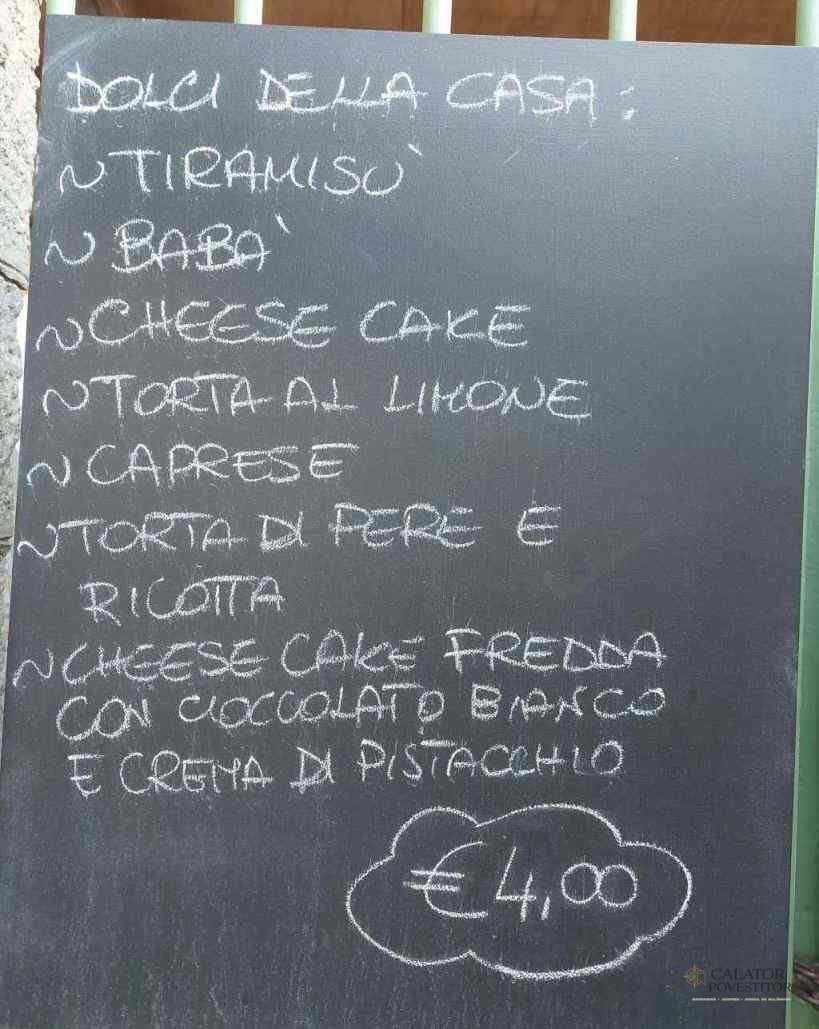 DOLCI DELLA CASA:
~TIRAMISU`
~ BABA`
~CHEESE CAKE
~TORTA AL LIMONE
~ CAPRESE
~TORTA DI PERE E
RICOTTA
~CHEESE CAKE FREDDA
CON CIOCCOLATO BIANCO
E CREMA DI PISTACCHIO
€ 4,00
CALATOR
POVESTITOR